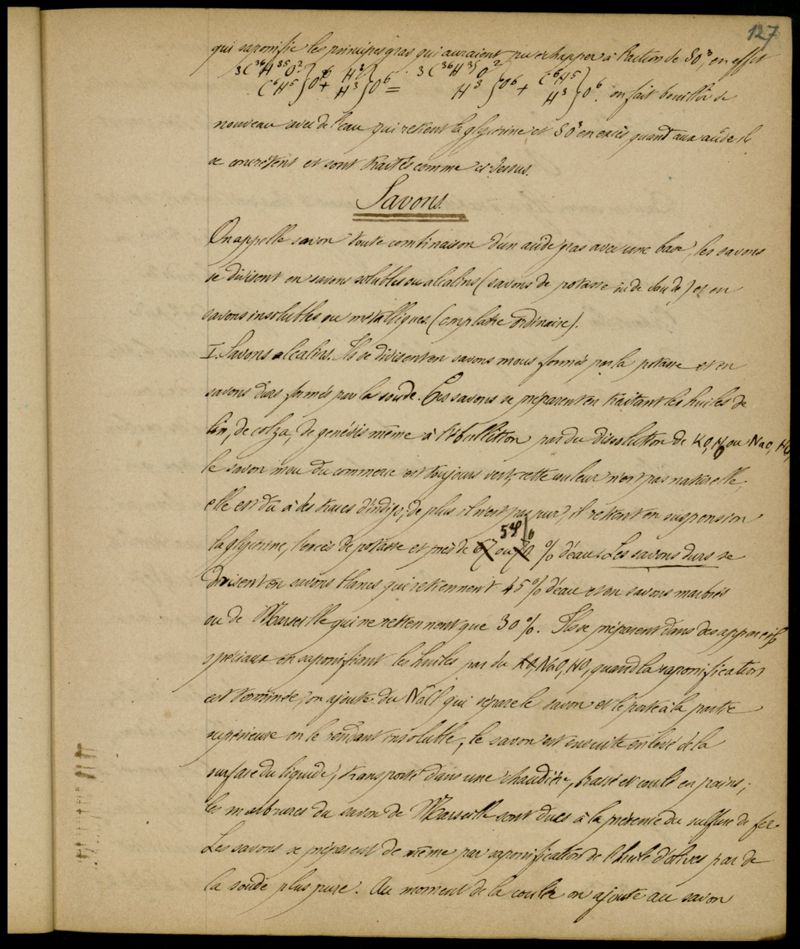 127
qui saponifie les principes gras qui auraient pu échapper à l'action de SO³ en effet
3C³⁶H³⁵O² C⁶H⁵ } O⁶ + H³ H³ } O⁶ = 3C³⁶H³⁵O² H³ } O⁶ + C⁶H⁵ H³ } O⁶. on fait bouillir de
nouveau avec de l'eau qui retient la glycérine et SO³ en excès quant aux acides ils
se concrètent et sont traités comme ci dessus.
Savons.
On appelle savon toute combinaison d'un acide gras avec une base, les savons
se divisent en savons solubles ou alcalins (savons de potasse et de soude) et en
savons insolubles ou métalliques (emplatre ordinaire).
I. Savons alcalins. Ils se divisent en savons mous formés par la potasse et en
savons durs formés par la soude. Ces savons se préparent en traitant les huiles de
lin, de colza, de même à l'ébullition par du dissolution de KO,HO ou NaO, HO,
le savon mou du commerce est toujours vert, cette couleur n'est pas naturelle,
elle est du à des traces d'indigo, de plus il n'est pas pur, il retient en suspension
la glycérine, l'excès de potasse et près de ou % d'eau. Les savons durs se
divisent en savons blancs qui retiennent 45 % d'eau et en savons marbrés
ou de Marseille qui ne retiennent que 30 %. Ils se préparent dans des appareils
spéciaux en saponifiant les huiles par du NaO, HO, quand la saponification
est terminée, on ajoute du NaCl qui sépare le savon et le porte à la partie
supérieure en le rendant insoluble, le savon est ensuite enlevé à la
surface du liquide, transporté dans une chaudière, brassé et coulé en pains;
les marbrures du savon de Marseille sont dues à la présence du sulfure de fer.
Les savons se préparent de même par saponification de l'huile d'olives par de
la soude plus pure. Au moment de la coulée on ajoute au savon